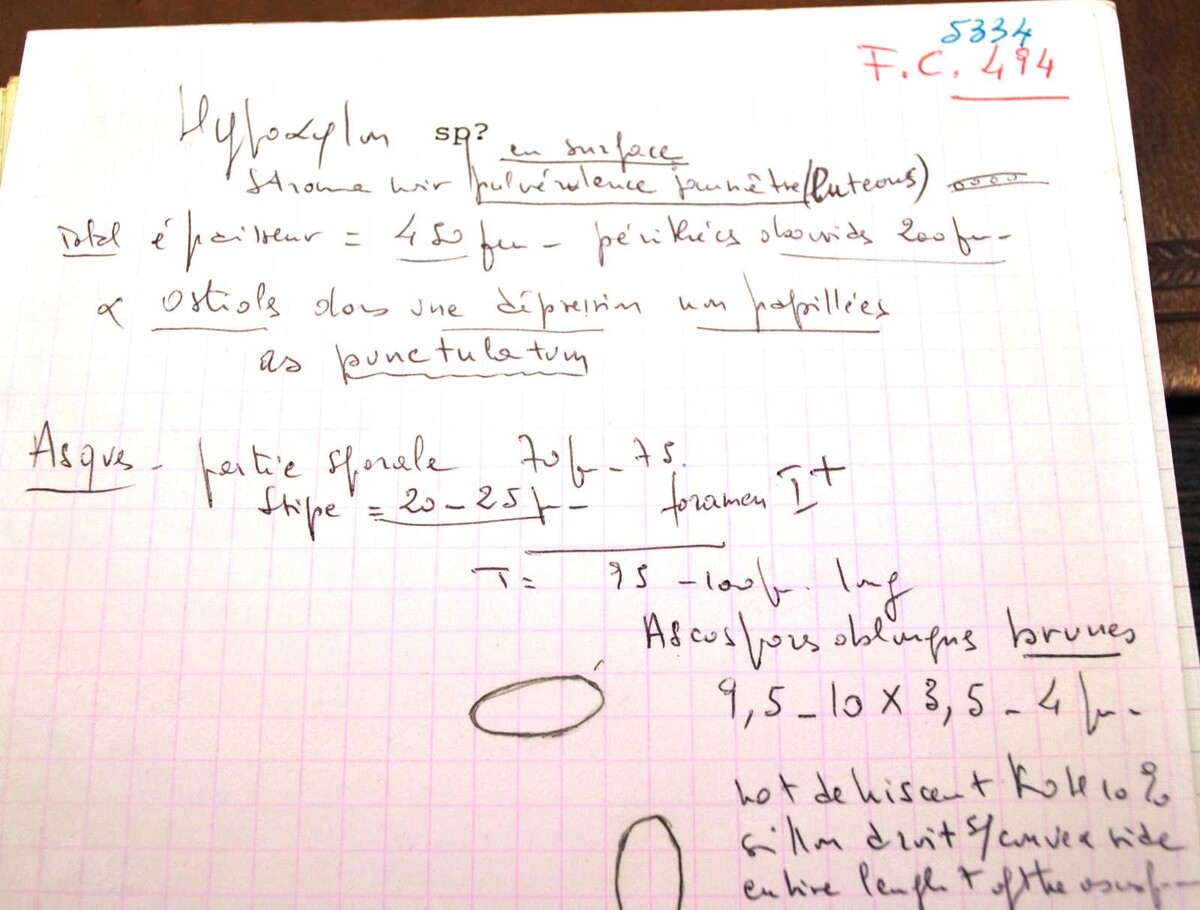 5334
F.C. 494
Hypoxylon sp?
en surface
Stroma noir pulvérulence jaunêtre (luteous)
Total épaisseur = 450 µm - périthéces obovoids 200 µm -
α ostiols dans une dépression non papillées
as punctulatum
Asques - partie sporale 70 µ - 75.
Stipe = 20 - 25 µ - foramen I+
T = 95 - 100 µ. long
Ascospors oblongues brunes
9,5 - 10 x 3,5 - 4 µ -
not dehiscent KOH 10 %
sillon droit s/ convex side
entire length of the